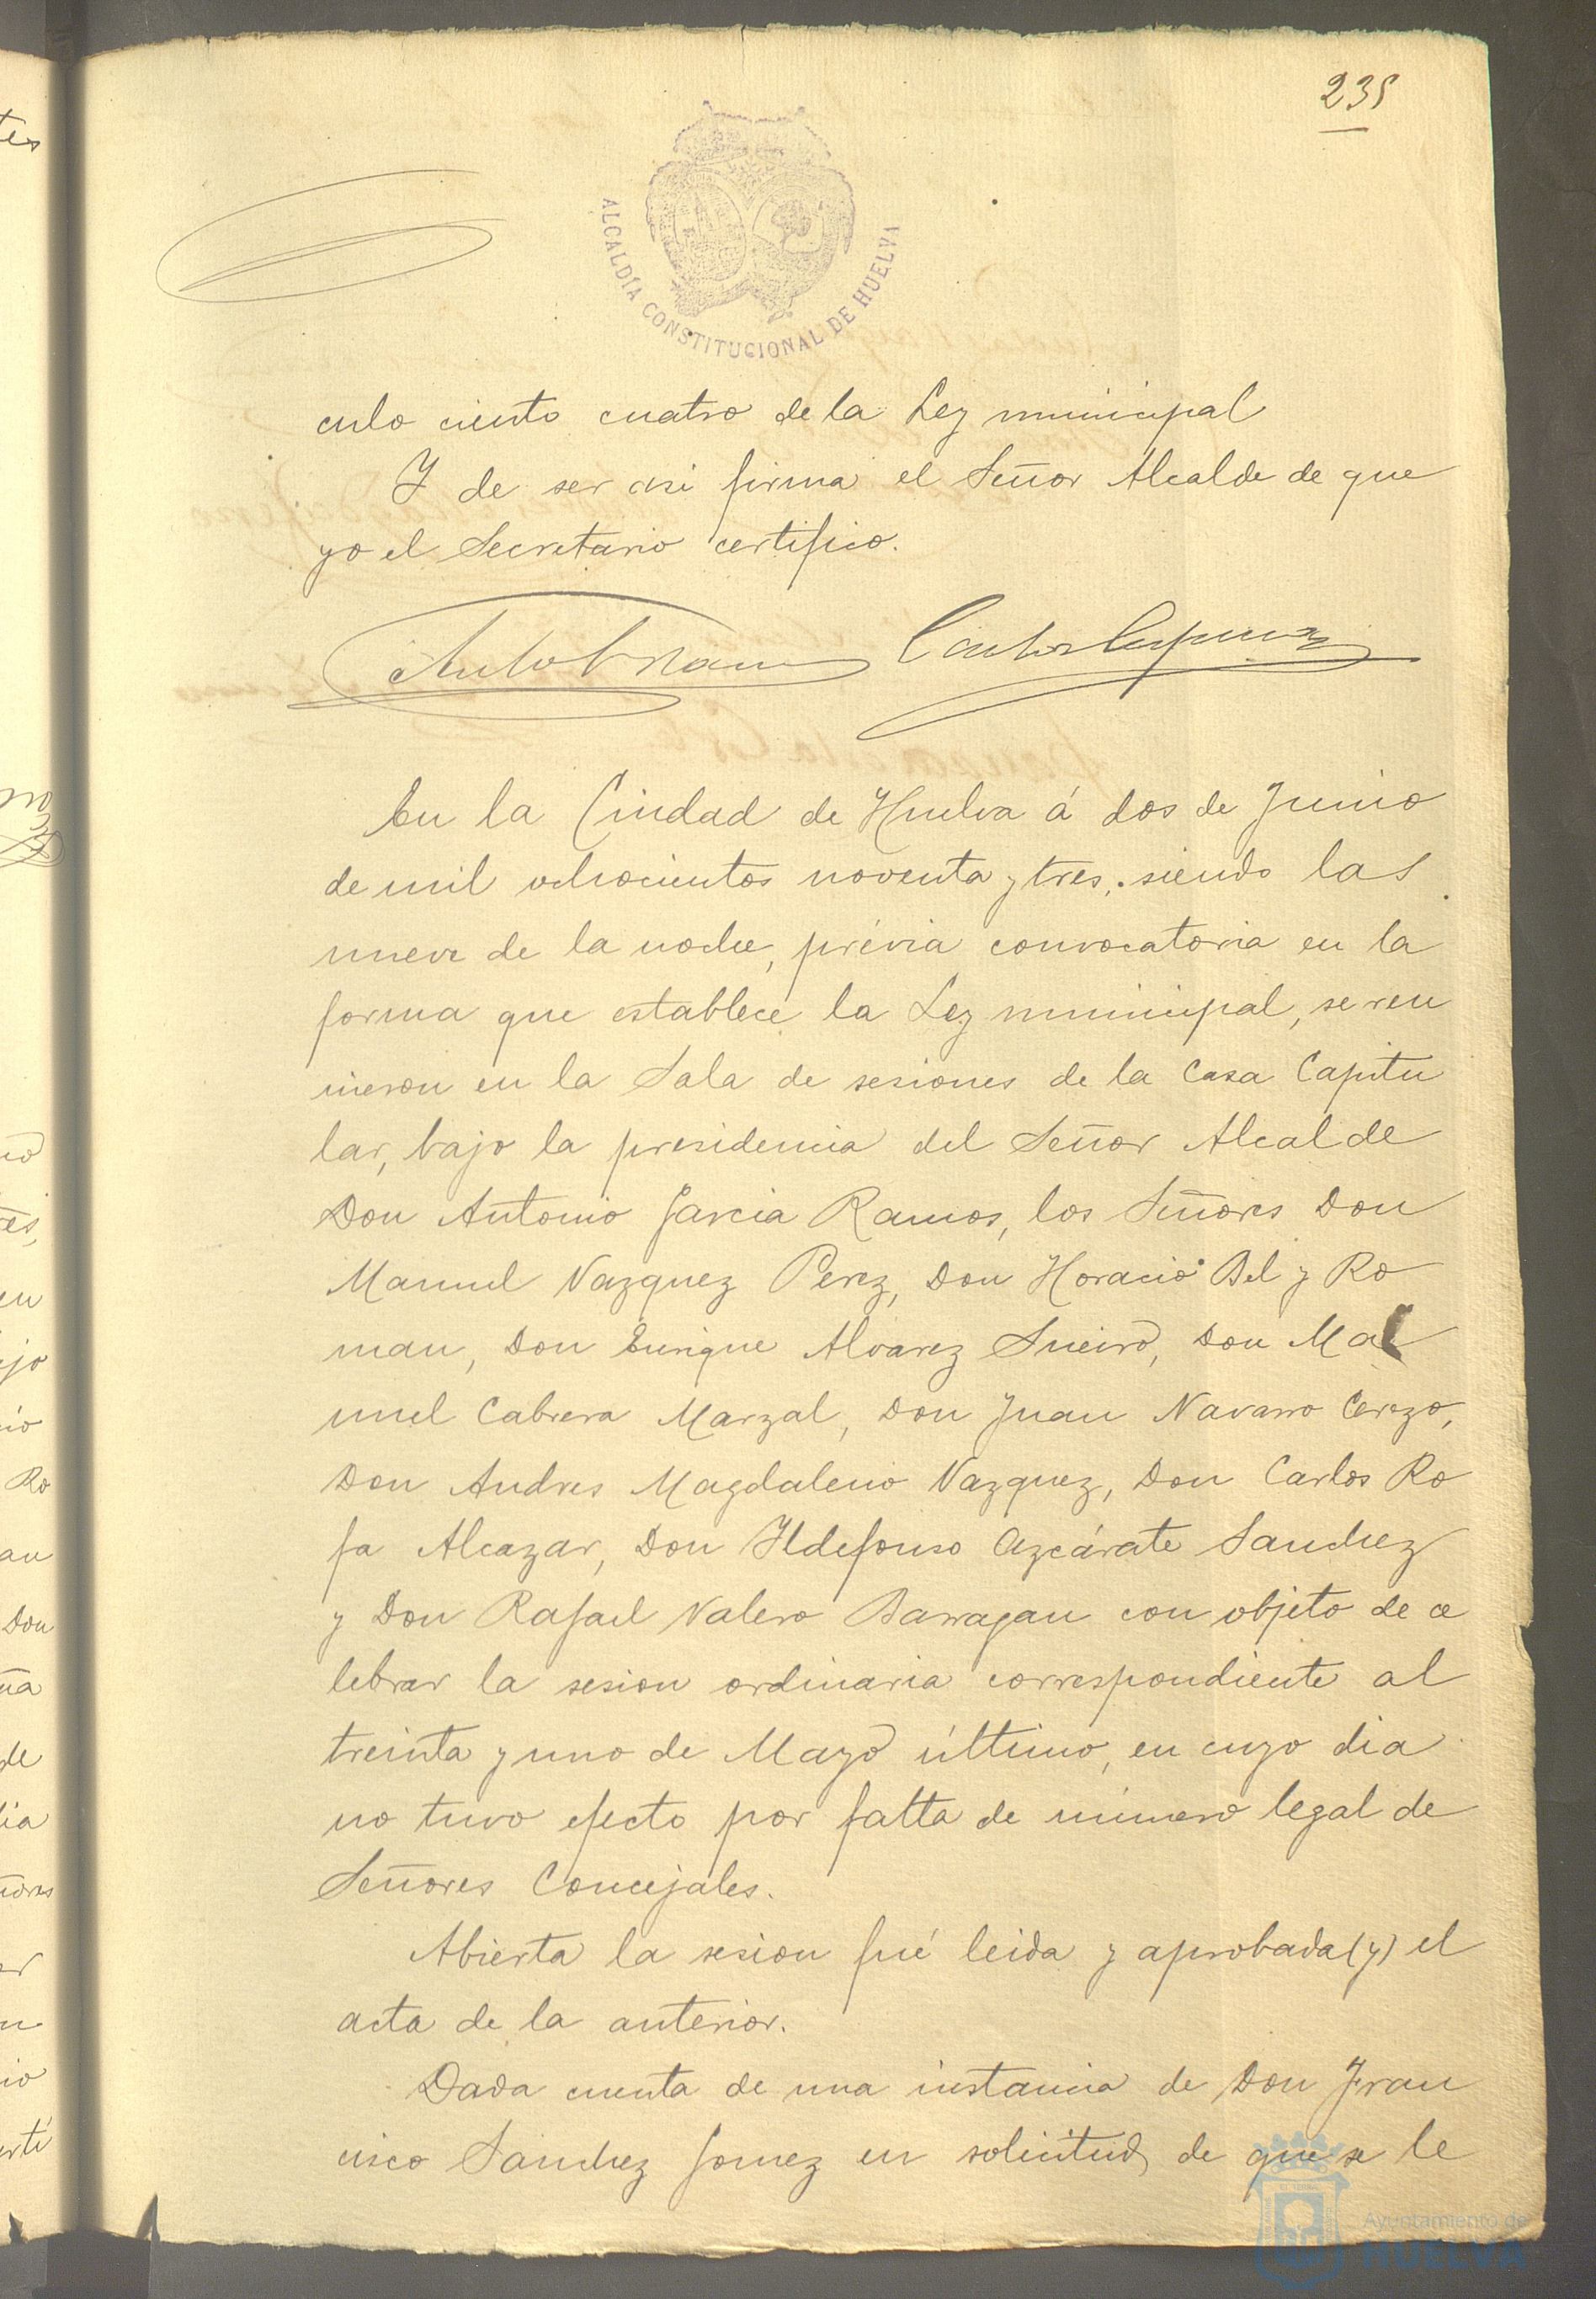 235
ALCALDÍA CONSTITUCIONAL DE HUELVA
culo ciento cuatro de la Ley municipal
Y de ser asi firma el Señor Alcalde de que
yo el Secretario certifico.
En la Ciudad de Huelva á dos de Junio
de mil ochocientos noventa y tres, siendo las
nueve de la noche, prévia convocatoria en la
forma que establece la Ley municipal, se reu
nieron en la Sala de sesiones de la Casa Capitu
lar, bajo la presidencia del Señor Alcalde
Don Antonio Garcia Ramos, los Señores Don
Manuel Vazquez Perez, Don Horacio Bel y Ro
man, Don Enrique Alvarez Sueiro, Don Ma
nuel Cabrera Marzal, Don Juan Navarro Cerezo,
Don Andres Magdaleno Vazquez, Don Carlos Ro
fa Alcazar, Don Yldefonso Azcárate Sanchez
y Don Rafael Valero Barragan con objeto de ce
lebrar la sesion ordinaria correspondiente al
treinta y uno de Mayo último, en cuyo dia
no tuvo efecto por falta de número legal de
Señores Concejales.
Abierta la sesion fué leida y aprobada (y) el
acta de la anterior.
Dada cuenta de una instancia de Don Fran
cisco Sanchez Gomez en solicitud de que se le
Ayuntamiento de
HUELVA